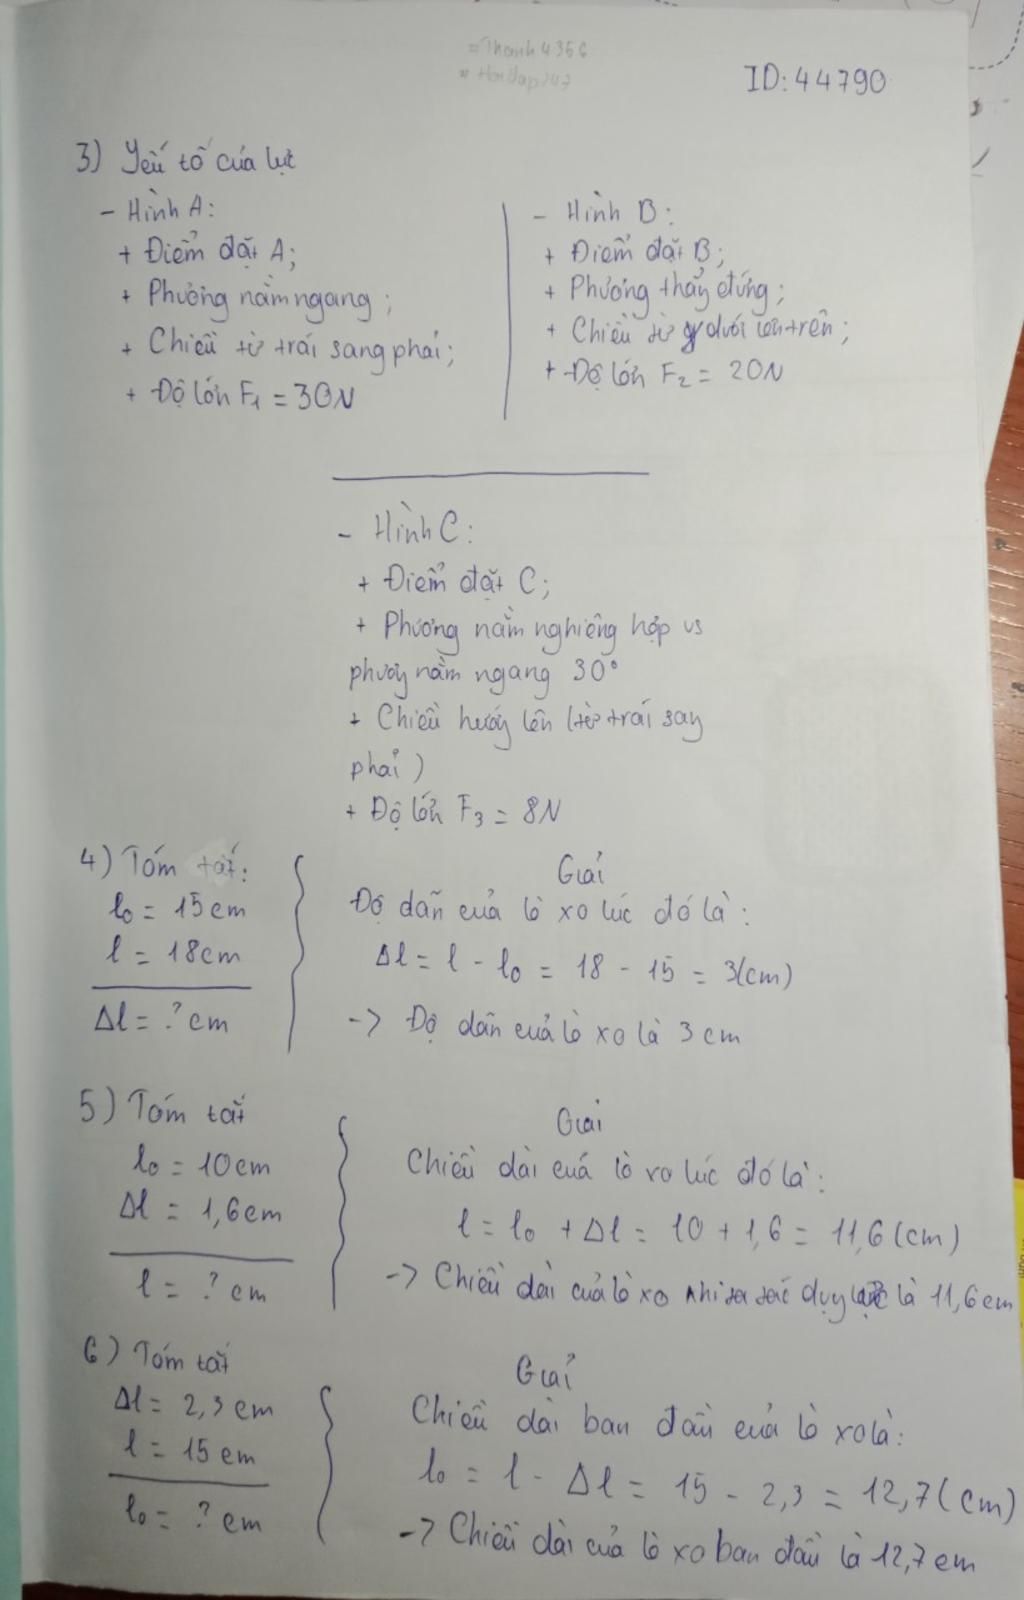 =Thanh4356
ID: 44790
3) Yếu tố của lực
- Hình A:
+ Điểm đặt A;
+ Phương nằm ngang;
+ Chiều từ trái sang phải;
+ Độ lớn F1 = 30N
- Hình B:
+ Điểm đặt B;
+ Phương thẳng đứng;
+ Chiều từ dưới lên trên;
+ Độ lớn F2 = 20N
- Hình C:
+ Điểm đặt C;
+ Phương nằm nghiêng hợp vs
phương nằm ngang 30°
+ Chiều hướng lên (từ trái sang
phải)
+ Độ lớn F3 = 8N
4) Tóm tắt:
l0 = 15cm
l = 18cm
Δl = ? cm
Giải
Độ dãn của lò xo lúc đó là:
Δl = l - l0 = 18 - 15 = 3(cm)
-> Độ dãn của lò xo là 3 cm
5) Tóm tắt
l0 = 10cm
Δl = 1,6cm
l = ? cm
Giải
Chiều dài của lò xo lúc đó là:
l = l0 + Δl = 10 + 1,6 = 11,6 (cm)
-> Chiều dài của lò xo khi tác dụng lực là 11,6 cm
6) Tóm tắt
Δl = 2,3 cm
l = 15 cm
l0 = ? cm
Giải
Chiều dài ban đầu của lò xo là:
l0 = l - Δl = 15 - 2,3 = 12,7 (cm)
-> Chiều dài của lò xo ban đầu là 12,7 cm